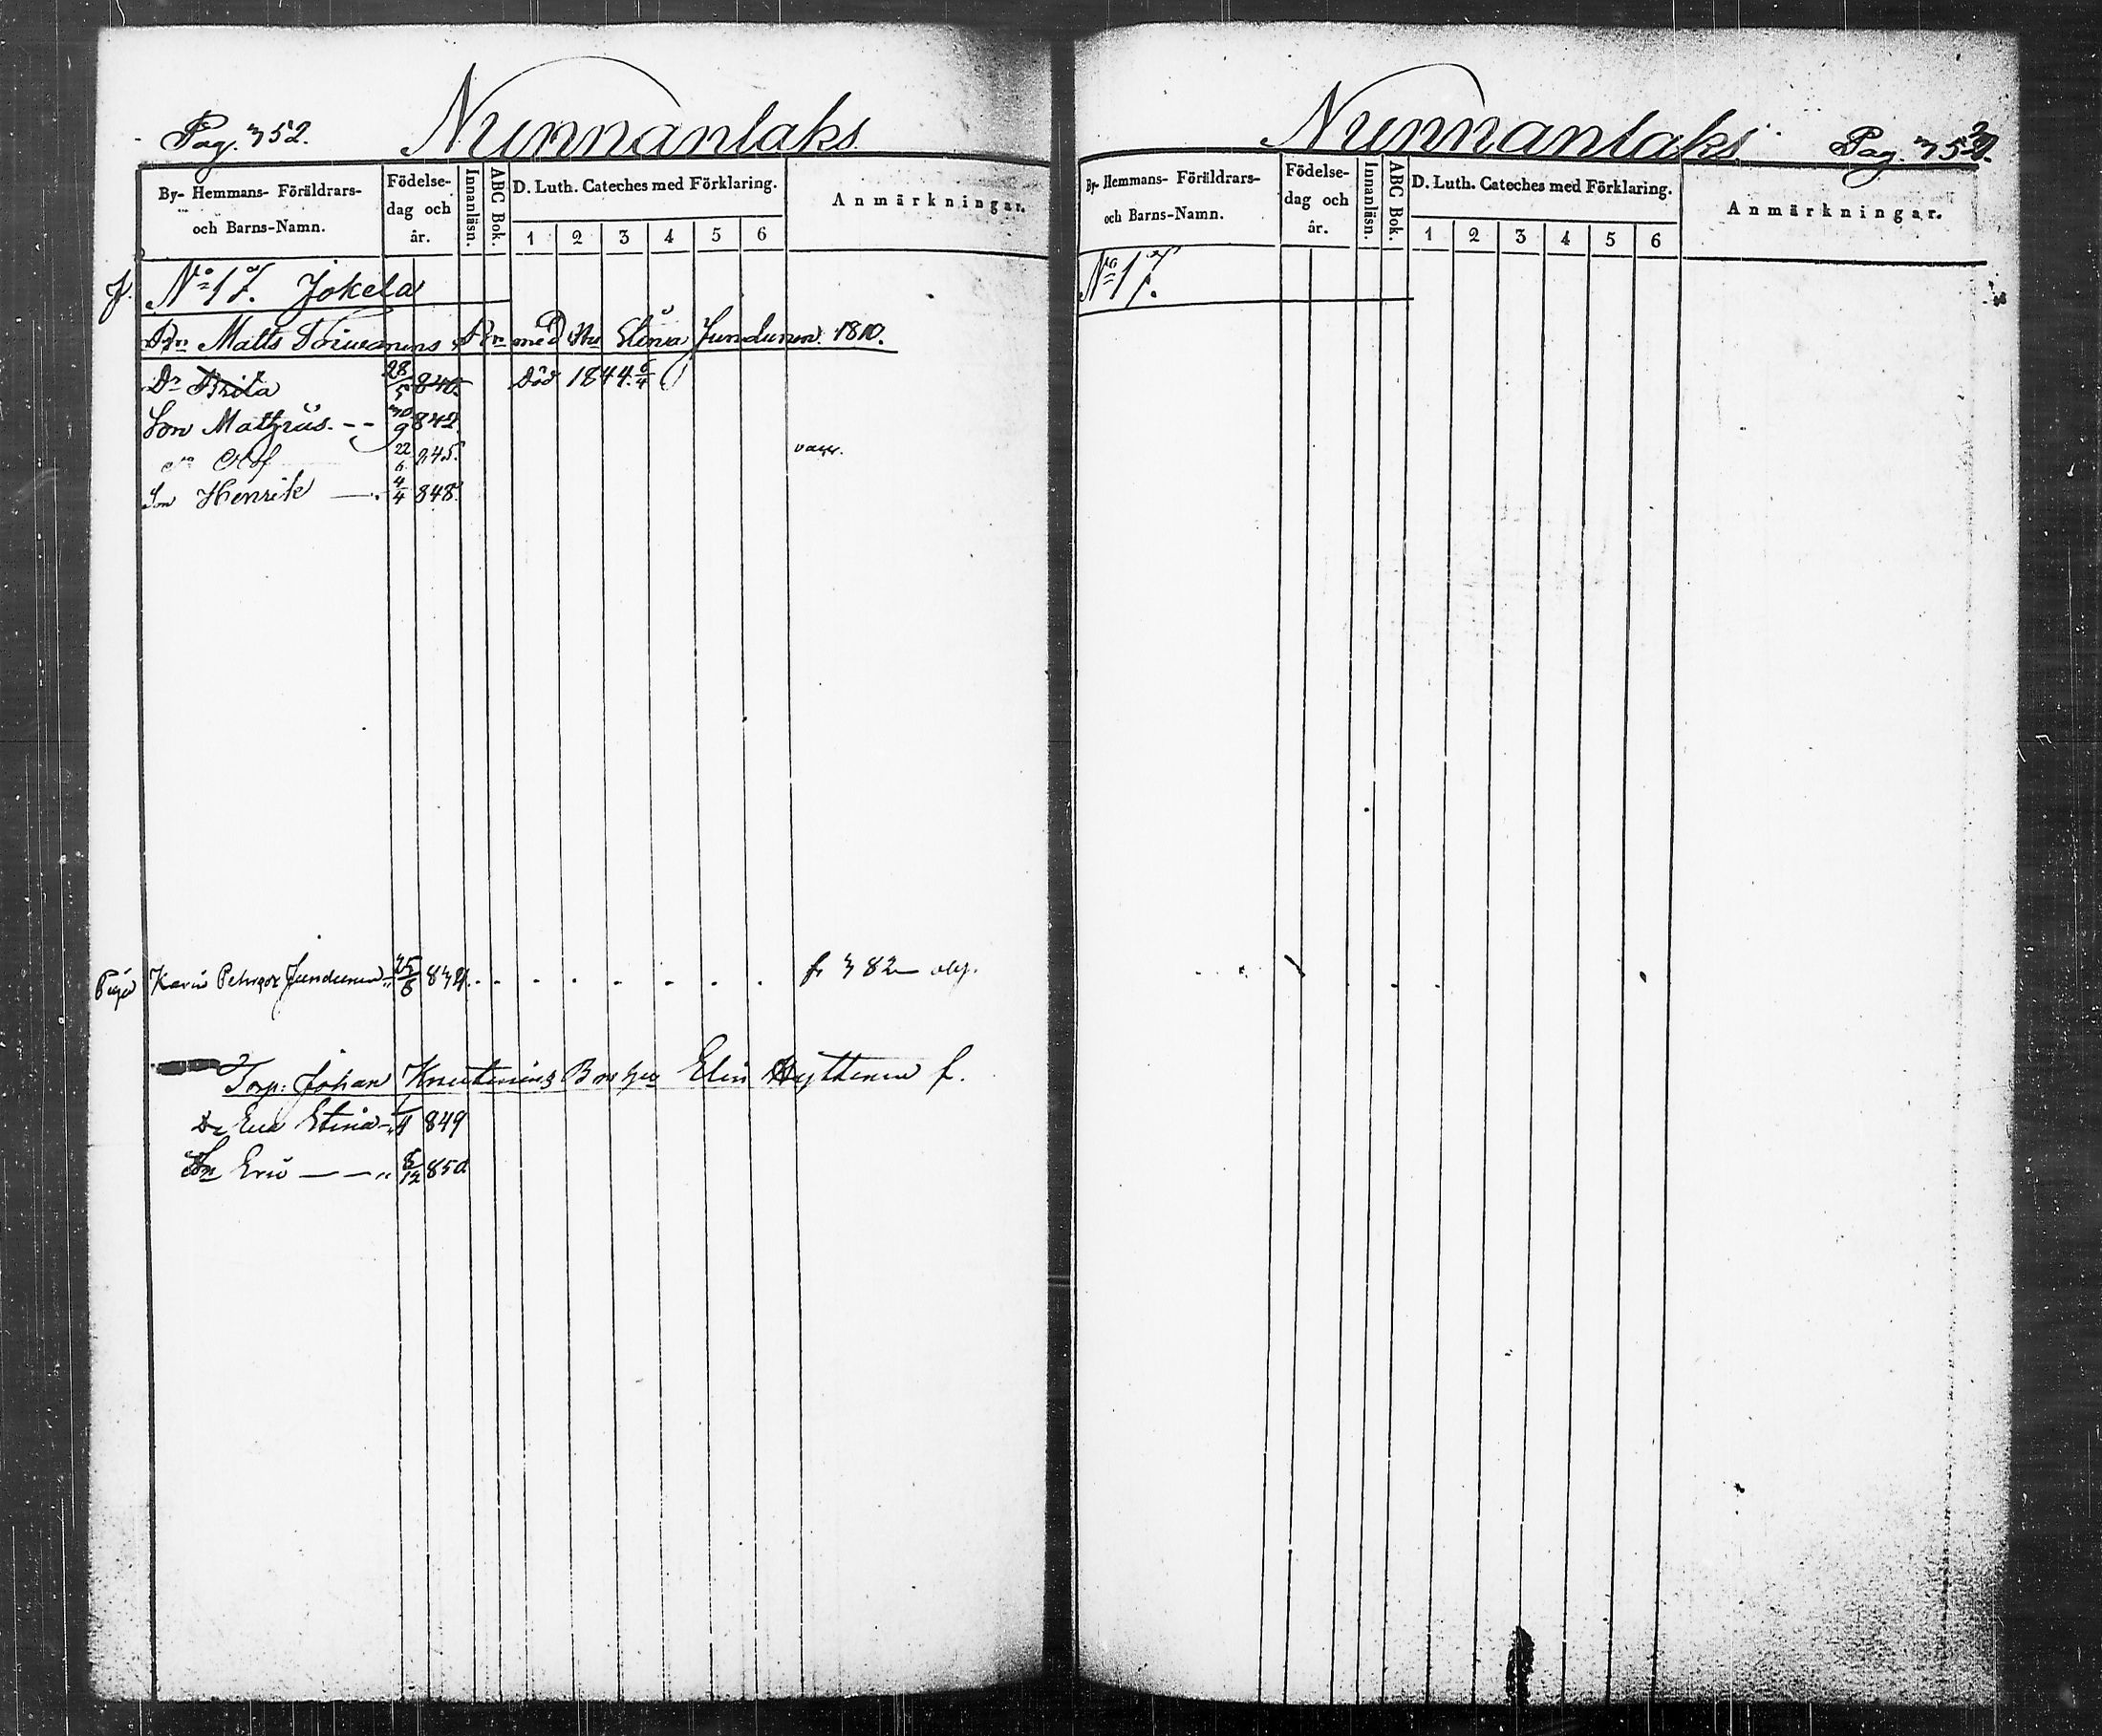 Pag. 352. Nunnanlaks
By- Hemmans- Föräldrars- och Barns-Namn. Födelse- dag och år. Innanläsn. ABC Bok. D. Luth. Cateches med Förklaring. Anmärkningar.
1 2 3 4 5 6
No 17. Jokela
Matts med Stina Jundunen 1810.
Dr Brita 28/5 840. Död 1844. 6/4
Son Mathias. -- 30/9 842.
Olof 22/6 845. vacc.
Son Henrik 4/4 848.
Karin Junduinen 25/6 f. 382
Torp: Johan Elin f.
Dr Eva Stina 849
Son Eric 8/12 850
Nunnanlaks Pag. 353.
By- Hemmans- Föräldrars- och Barns-Namn. Födelse- dag och år. Innanläsn. ABC Bok. D. Luth. Cateches med Förklaring. Anmärkningar.
1 2 3 4 5 6
No 17.